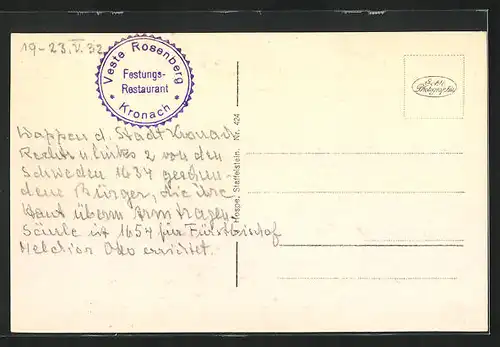 19-23.V.32
Veste Rosenberg
Festungs-
Restaurant
* Kronach *
Echte
Photographie
Wappen d. Stadt Kronach
Rechts u. links 2 von den
Schweden 1634 geschun-
dene Bürger, die ihre
Haut überm Arm tragen
Säule ist 1654 für Fürstbischof
Melchior Otto errichtet.
Hospe, Staffelstein. Nr. 424